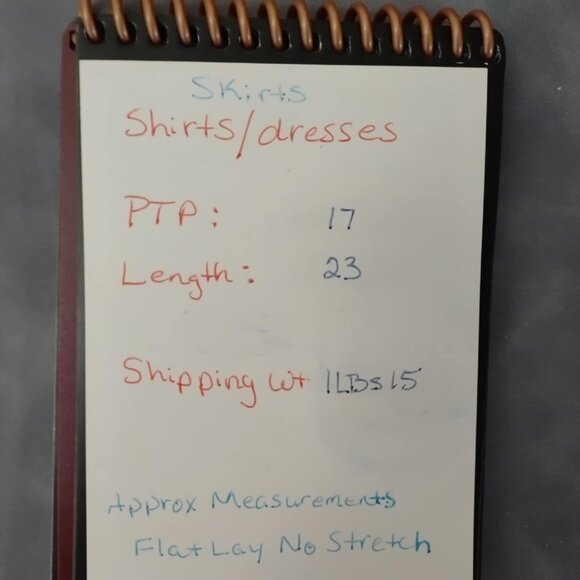 Skirts
Shirts/dresses
PTP: 17
Length: 23
Shipping Wt 1LBs15
Approx Measurements
Flat Lay No Stretch